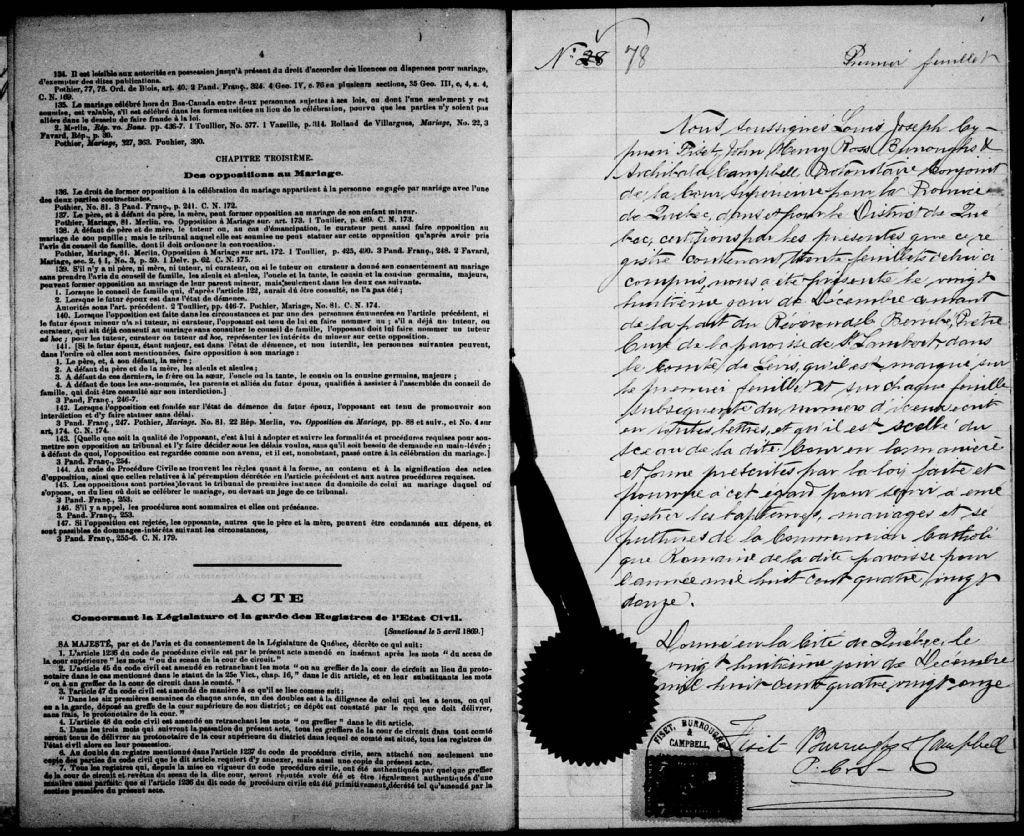 4
134. Il est loisible aux autorités en possession jusqu'à présent du droit d'accorder des licences ou dispenses pour mariage,
d'exempter des dites publications.
Pothier, 77, 78. Ord. de Blois, art. 40. 2 Pand. Franç., 324. 4 Geo. IV, c. 76 en plusieurs sections, 35 Geo. III, c, 4, s. 4,
C. N. 169.
135. Le mariage célébré hors du Bas-Canada entre deux personnes sujettes à ses lois, ou dont l'une seulement y est
soumise, est valable, s'il est célébré dans les formes usitées au lieu de la célébration, pourvu que les parties n'y soient pas
allées dans le dessein de faire fraude à la loi.
2. Merlin, Rép. vo. Bans. pp. 436-7. 1 Toullier, No. 577. 1 Vazeille, p. 314. Rolland de Villargues, Mariage, No. 22, 3
Favard, Rép., p. 30.
Pothier, Mariage, 327, 363. Pouhier, 390.
CHAPITRE TROISIÈME.
Des oppositions au Mariage.
136. Le droit de former opposition à la célébration du mariage appartient à la personne engagée par mariage avec l'une
des deux parties contractantes.
Pothier, No. 81. 3 Pand. Franç., p. 241. C. N. 172.
137. Le père, et à défaut du père, la mère, peut former opposition au mariage de son enfant mineur.
Pothier, Mariage, 81. Merlin, vo. Opposition à Mariage sur art. 173. 1 Toullier, p. 489. C. N. 173.
138. A défaut de père et de mère, le tuteur ou, au cas d'émancipation, le curateur peut aussi faire opposition au
mariage de son pupille; mais le tribunal auquel elle est soumise ne peut statuer sur cette opposition qu'après avoir pris
l'avis du conseil de famille, dont il doit ordonner la convocation.
Pothier, Mariage, 81. Merlin, Opposition à Mariage sur art. 172. 1 Toullier, p. 425, 490. 3 Pand. Franç., 248. 2 Favard,
Mariage, sec. 2, § 1, No. 3, p. 59. 1 Delv. p. 62. C. N. 175.
139. S'il n'y a ni père, ni mère, ni tuteur, ni curateur, ou si le tuteur ou curateur a donné son consentement au mariage
sans prendre l'avis du conseil de famille, les aïeuls et aïeules, l'oncle et la tante, le cousin et la cousine germains, majeurs,
peuvent former opposition au mariage de leur parent mineur, mais seulement dans les deux cas suivants.
1. Lorsque le conseil de famille qui, d'après l'article 122, aurait dû être consulté, ne l'a pas été;
2. Lorsque le futur époux est dans l'état de démence.
Autorités sous l'art. précédent. 2 Toullier, pp. 446-7. Pothier, Mariage, No. 81. C. N. 174.
140. Lorsque l'opposition est faite dans les circonstances et par une des personnes énumérées en l'article précédent, si
le futur époux mineur n'a ni tuteur, ni curateur, l'opposant est tenu de lui en faire nommer un; s'il a déjà un tuteur, ou
curateur, qui ait déjà consenti au mariage sans consulter le conseil de famille, l'opposant doit lui faire nommer un tuteur
ad hoc; pour les tuteur, curateur ou tuteur ad hoc, représenter les intérêts du mineur sur cette opposition.
141. [Si le futur époux, étant majeur, est dans l'état de démence, et non interdit, les personnes suivantes peuvent,
dans l'ordre où elles sont mentionnées, faire opposition à son mariage:
1. Le père, et, à son défaut, la mère;
2. A défaut du père et de la mère, les aïeuls et aïeules;
3. A défaut de ces derniers, le frère ou la sœur, l'oncle ou la tante, le cousin ou la cousine germains, majeurs;
4. A défaut de tous les sus-nommés, les parents et alliés du futur époux, qualifiés à assister à l'assemblée du conseil de
famille, qui doit être consulté sur son interdiction.]
3 Pand. Franç., 246-7.
142. Lorsque l'opposition est fondée sur l'état de démence du futur époux, l'opposant est tenu de promouvoir son
interdiction et d'y faire statuer sans délai.
3 Pand. Franç., 247. Pothier, Mariage. No. 81. 22 Rép. Merlin, vo. Opposition au Mariage, pp. 88 et suiv., et No. 4 sur
art. 174. C. N. 174.
143. [Quelle que soit la qualité de l'opposant, c'est à lui à adopter et suivre les formalités et procédures requises pour sou-
mettre son opposition au tribunal et l'y faire décider sous les délais voulus, sans qu'il soit besoin de demande en main-levée;
à défaut de quoi, l'opposition est regardée comme non avenu, et il est, nonobstant, passé outre à la célébration du mariage.]
3 Pand. Franç., 254.
144. Au code de Procédure Civile se trouvent les règles quant à la forme, au contenu et à la signification des actes
d'opposition, ainsi que celles relatives à la péremption décrétée en l'article précédent et aux autres procédures requises.
145. Les oppositions sont portées devant le tribunal de première instance du domicile de celui au mariage duquel on
s'oppose, ou du lieu où doit se célébrer le mariage, ou devant un juge de ce tribunal.
3 Pand. Franç., 253.
146. S'il y a appel, les procédures sont sommaires et elles ont préséance.
3. Pand. Franç., 253.
147. Si l'opposition est rejetée, les opposants, autres que le père et la mère, peuvent être condamnés aux dépens, et
sont passibles de dommages-intérêts suivant les circonstances,
3 Pand. Franç., 255-6. C. N. 179.
ACTE
Concernant la Législature et la garde des Registres de l'Etat Civil.
[Sanctionné le 5 avril 1869.]
SA MAJESTÉ, par et de l'avis et du consentement de la Législature de Québec, décrète ce qui suit:
1. L'article 1236 du code de procédure civile est par le présent acte amendé en insérant après les mots "du sceau de
la cour supérieure" les mots "ou du sceau de la cour de circuit."
2. L'article 45 du code civil est amendé en retranchant les mots "ou au greffier de la cour de circuit au lieu du proto-
notaire dans le cas mentionné dans le statut de la 25e Vict., chap. 16," dans le dit article, et en leur substituants les mots
"ou à un greffier de la cour de circuit dans le comté."
3. l'article 47 du code civil est amendé de manière à ce qu'il se lise comme suit:
"Dans les six premières semaines de chaque année, un des doubles est à la diligence de celui qui les a tenus, ou qui
en a la garde, déposé au greffe de la cour supérieure de son district; ce dépôt est constaté par le reçu que doit délivrer,
sans frais, le protonotaire de la cour."
4. L'article 48 du code civil est amendé en retranchant les mots "ou greffier" dans le dit article.
5. Dans les trois mois qui suivront la passation du présent acte, tous les greffiers de la cour de circuit dans tout comté
seront tenus de délivrer au protonotaire de la cour supérieure du district dans lequel ce comté est situé, tous les registres de
l'état civil alors en leur possession.
6. Au double du registre mentionné dans l'article 1237 du code de procédure civile, sera attaché non seulement une
copie des parties du code civil que le dit article requiert d'y annexer, mais aussi une copie du présent acte.
7. Tous les registres qui, depuis la mise en vigueur du code de procédure civile, ont été authentiqués par quelque greffier
de la cour de circuit et revêtus du sceau de la dite cour, seront réputés avoir été et être légalement authentiqués d'une
manière aussi parfaite que si l'article 1236 du dit code de procédure civile eût été primitivement décrété tel qu'amendé par la
section première du présent acte.
No. 28 78
Premier feuillet
Nous soussignés Louis Joseph Cy-
prien Fiset, John Henry Ross Burroughs &
Archibald Campbell Protonotaire Conjoint
de la Cour Supérieure pour la Province
de Québec, dans et pour le District de Qué
bec, certifions par les présentes que ce re
gistre contenant trente feuillets celui ci
compris, nous a été présenté le vingt
huitième jour de Décembre courant
de la part du Révérend E. Benoit, Prêtre
Curé de la paroisse de St Lambert, dans
le Comté de Lévis, qu'il est marqué sur
le premier feuillet et sur chaque feuillet
subséquent du numéro d'iceux écrit
en toutes lettres, et qu'il est scellé du
sceau de la dite Cour en la manière
et forme prescrites par la loi faite et
pourvue à cet égard pour servir à enre
gistrer les baptêmes, mariages et sé
pultures de la Communion Catholi
que Romaine de la dite paroisse pour
l'année mil huit cent quatre vingt
douze.
Donné en la Cité de Québec, le
vingt huitième jour de Décembre
mil huit cent quatre vingt onze
Fiset Burroughs & Campbell
P. C. S.
FISET, BURROUGHS
& CAMPBELL